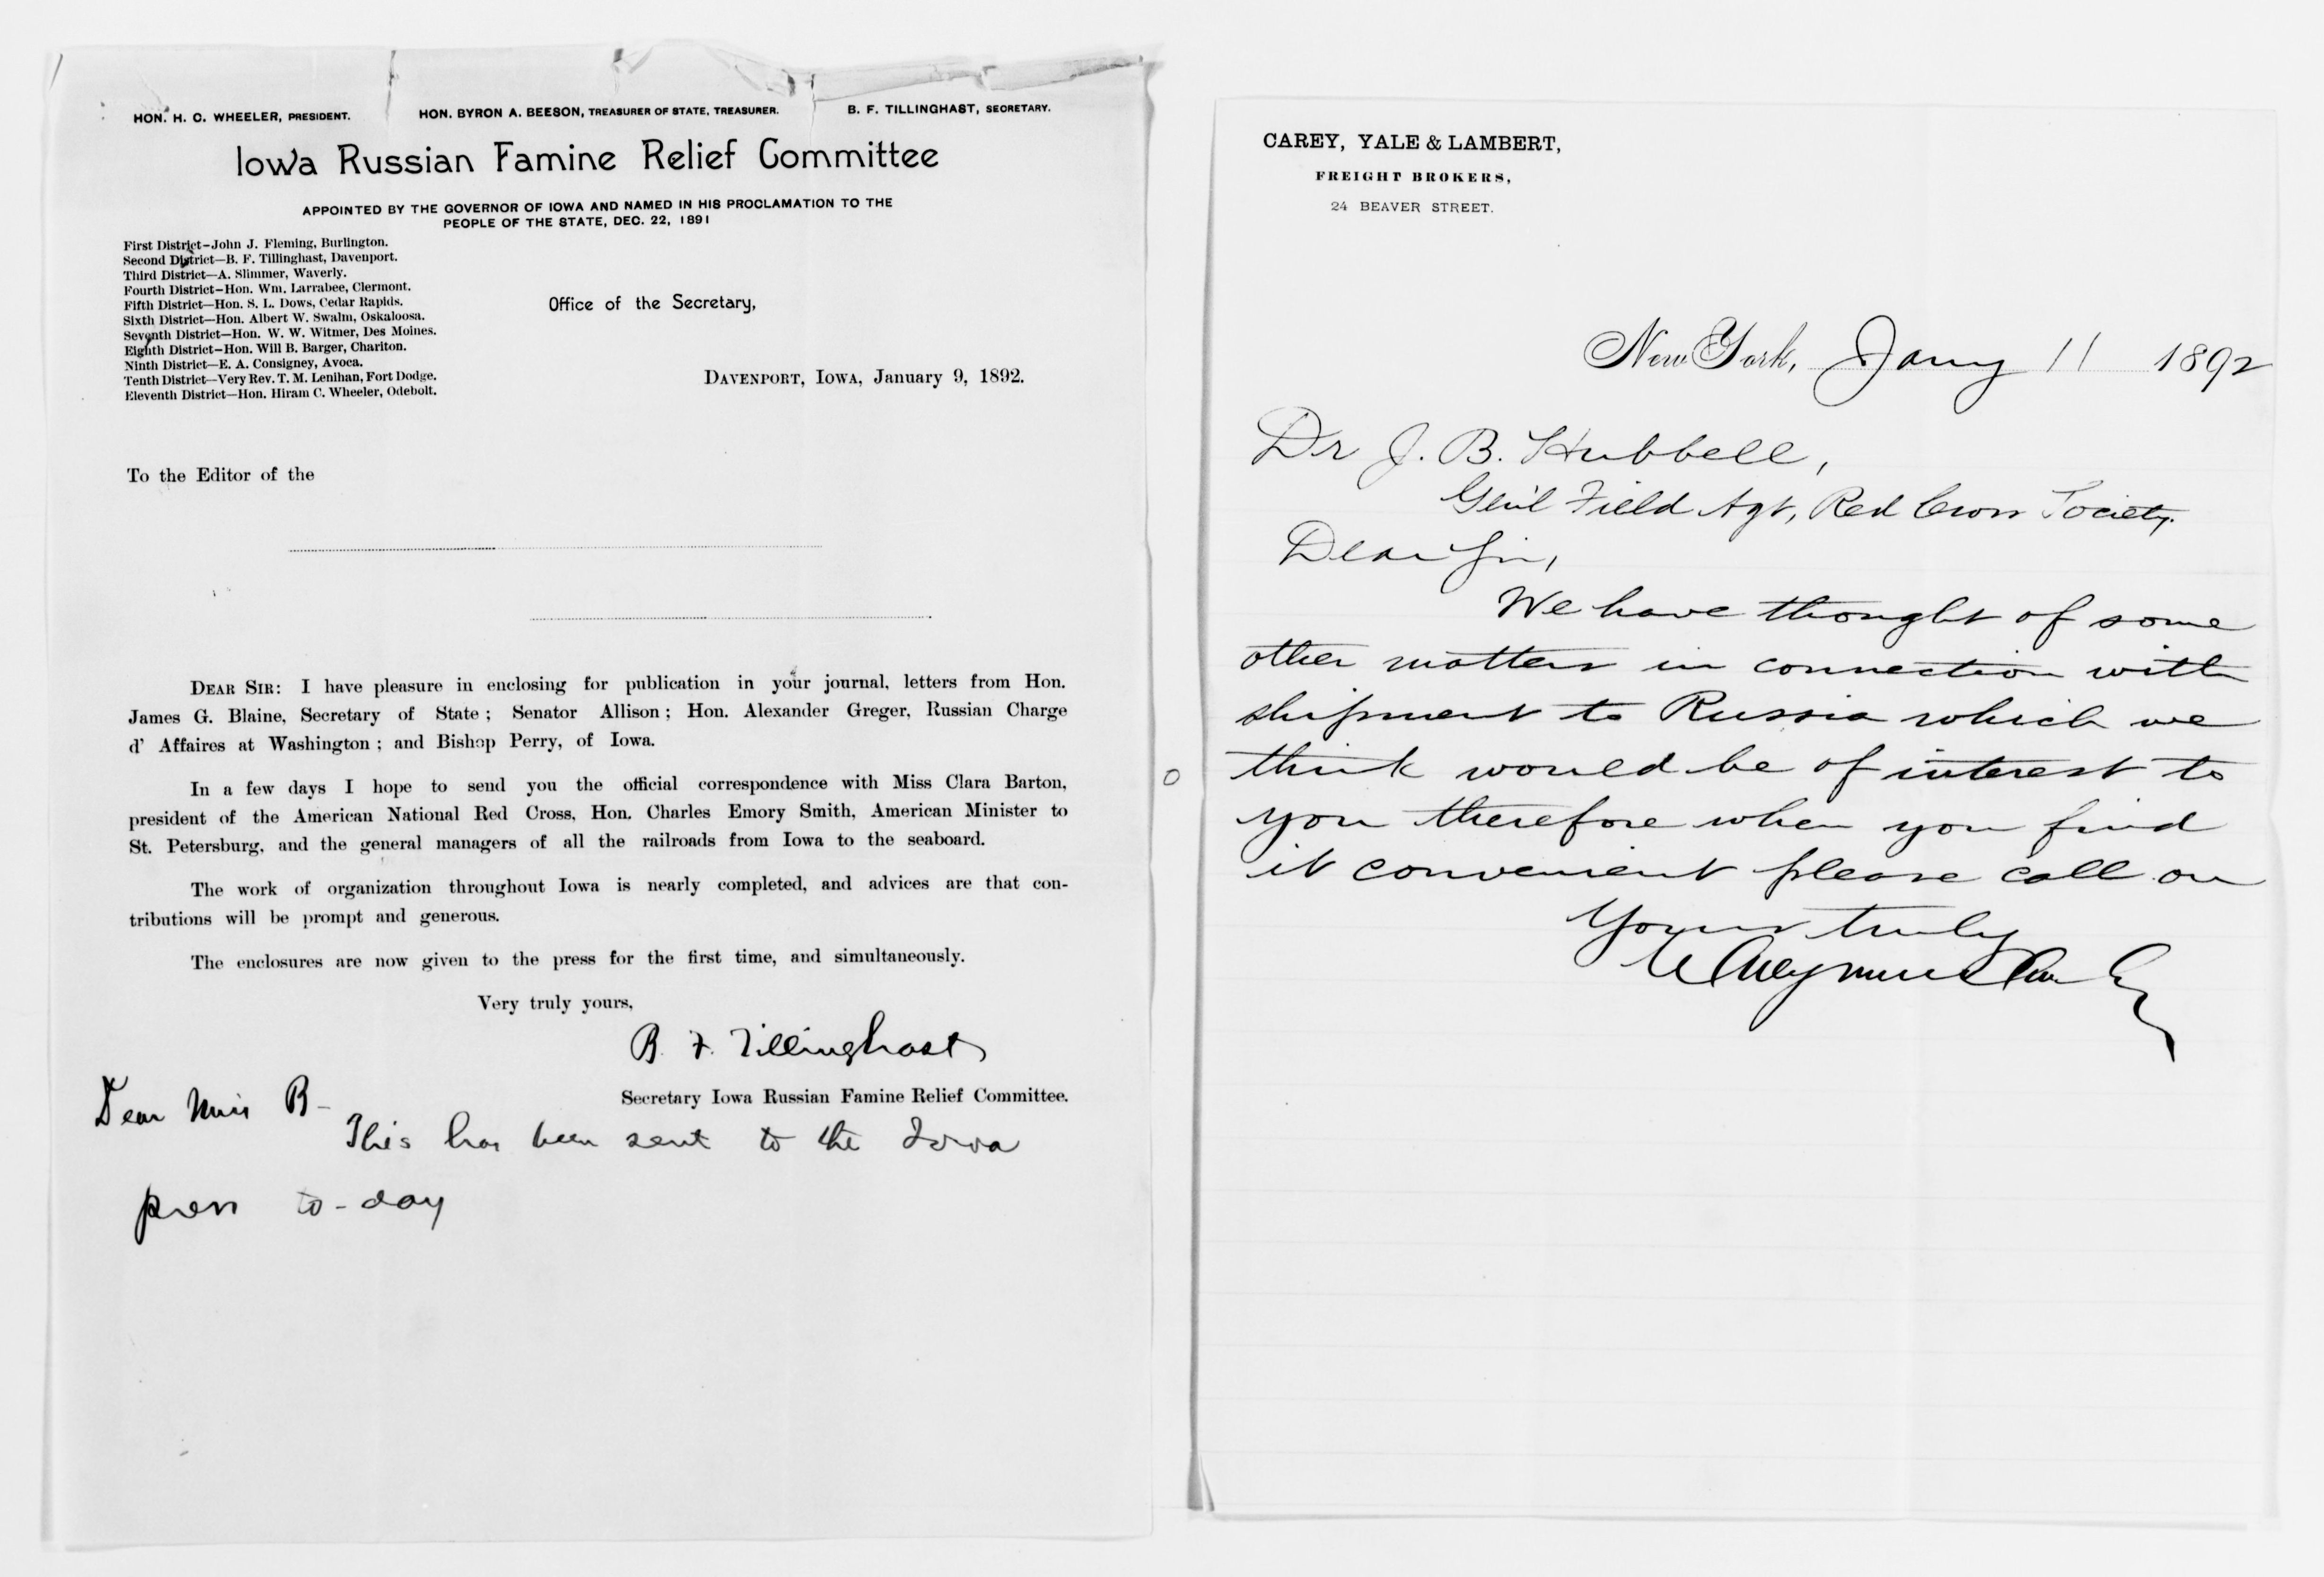 HON. H. C. WHEELER, PRESIDENT. HON. BYRON A. BEESON, TREASURER OF STATE, TREASURER. B. F. TILLINGHAST, SECRETARY.
Iowa Russian Famine Relief Committee
APPOINTED BY THE GOVERNOR OF IOWA AND NAMED IN HIS PROCLAMATION TO THE
PEOPLE OF THE STATE, DEC. 22, 1891
First District–John J. Fleming, Burlington.
Second District—B. F. Tillinghast, Davenport.
Third District—A. Slimmer, Waverly.
Fourth District–Hon. Wm. Larrabee, Clermont.
Fifth District—Hon. S. L. Dows, Cedar Rapids.
Sixth District—Hon. Albert W. Swalm, Oskaloosa.
Seventh District—Hon. W. W. Witmer, Des Moines.
Eighth District–Hon. Will B. Barger, Chariton.
Ninth District—E. A. Consigney, Avoca.
Tenth District—Very Rev. T. M. Lenihan, Fort Dodge.
Eleventh District—Hon. Hiram C. Wheeler, Odebolt.
Office of the Secretary,
DAVENPORT, IOWA, January 9, 1892.
To the Editor of the
DEAR SIR: I have pleasure in enclosing for publication in your journal, letters from Hon.
James G. Blaine, Secretary of State; Senator Allison; Hon. Alexander Greger, Russian Charge
d' Affaires at Washington; and Bishop Perry, of Iowa.
In a few days I hope to send you the official correspondence with Miss Clara Barton,
president of the American National Red Cross, Hon. Charles Emory Smith, American Minister to
St. Petersburg, and the general managers of all the railroads from Iowa to the seaboard.
The work of organization throughout Iowa is nearly completed, and advices are that con-
tributions will be prompt and generous.
The enclosures are now given to the press for the first time, and simultaneously.
Very truly yours,
B. F. Tillinghast
Secretary Iowa Russian Famine Relief Committee.
Dear Miss B–
This has been sent to the Iowa
press to-day
CAREY, YALE & LAMBERT,
FREIGHT BROKERS,
24 BEAVER STREET.
New York, Jany 11 1892
Dr J. B. Hubbell,
Gen'l Field Agt, Red Cross Society.
Dear Sir,
We have thought of some
other matters in connection with
shipment to Russia which we
think would be of interest to
you therefore when you find
it convenient please call on
Yours truly